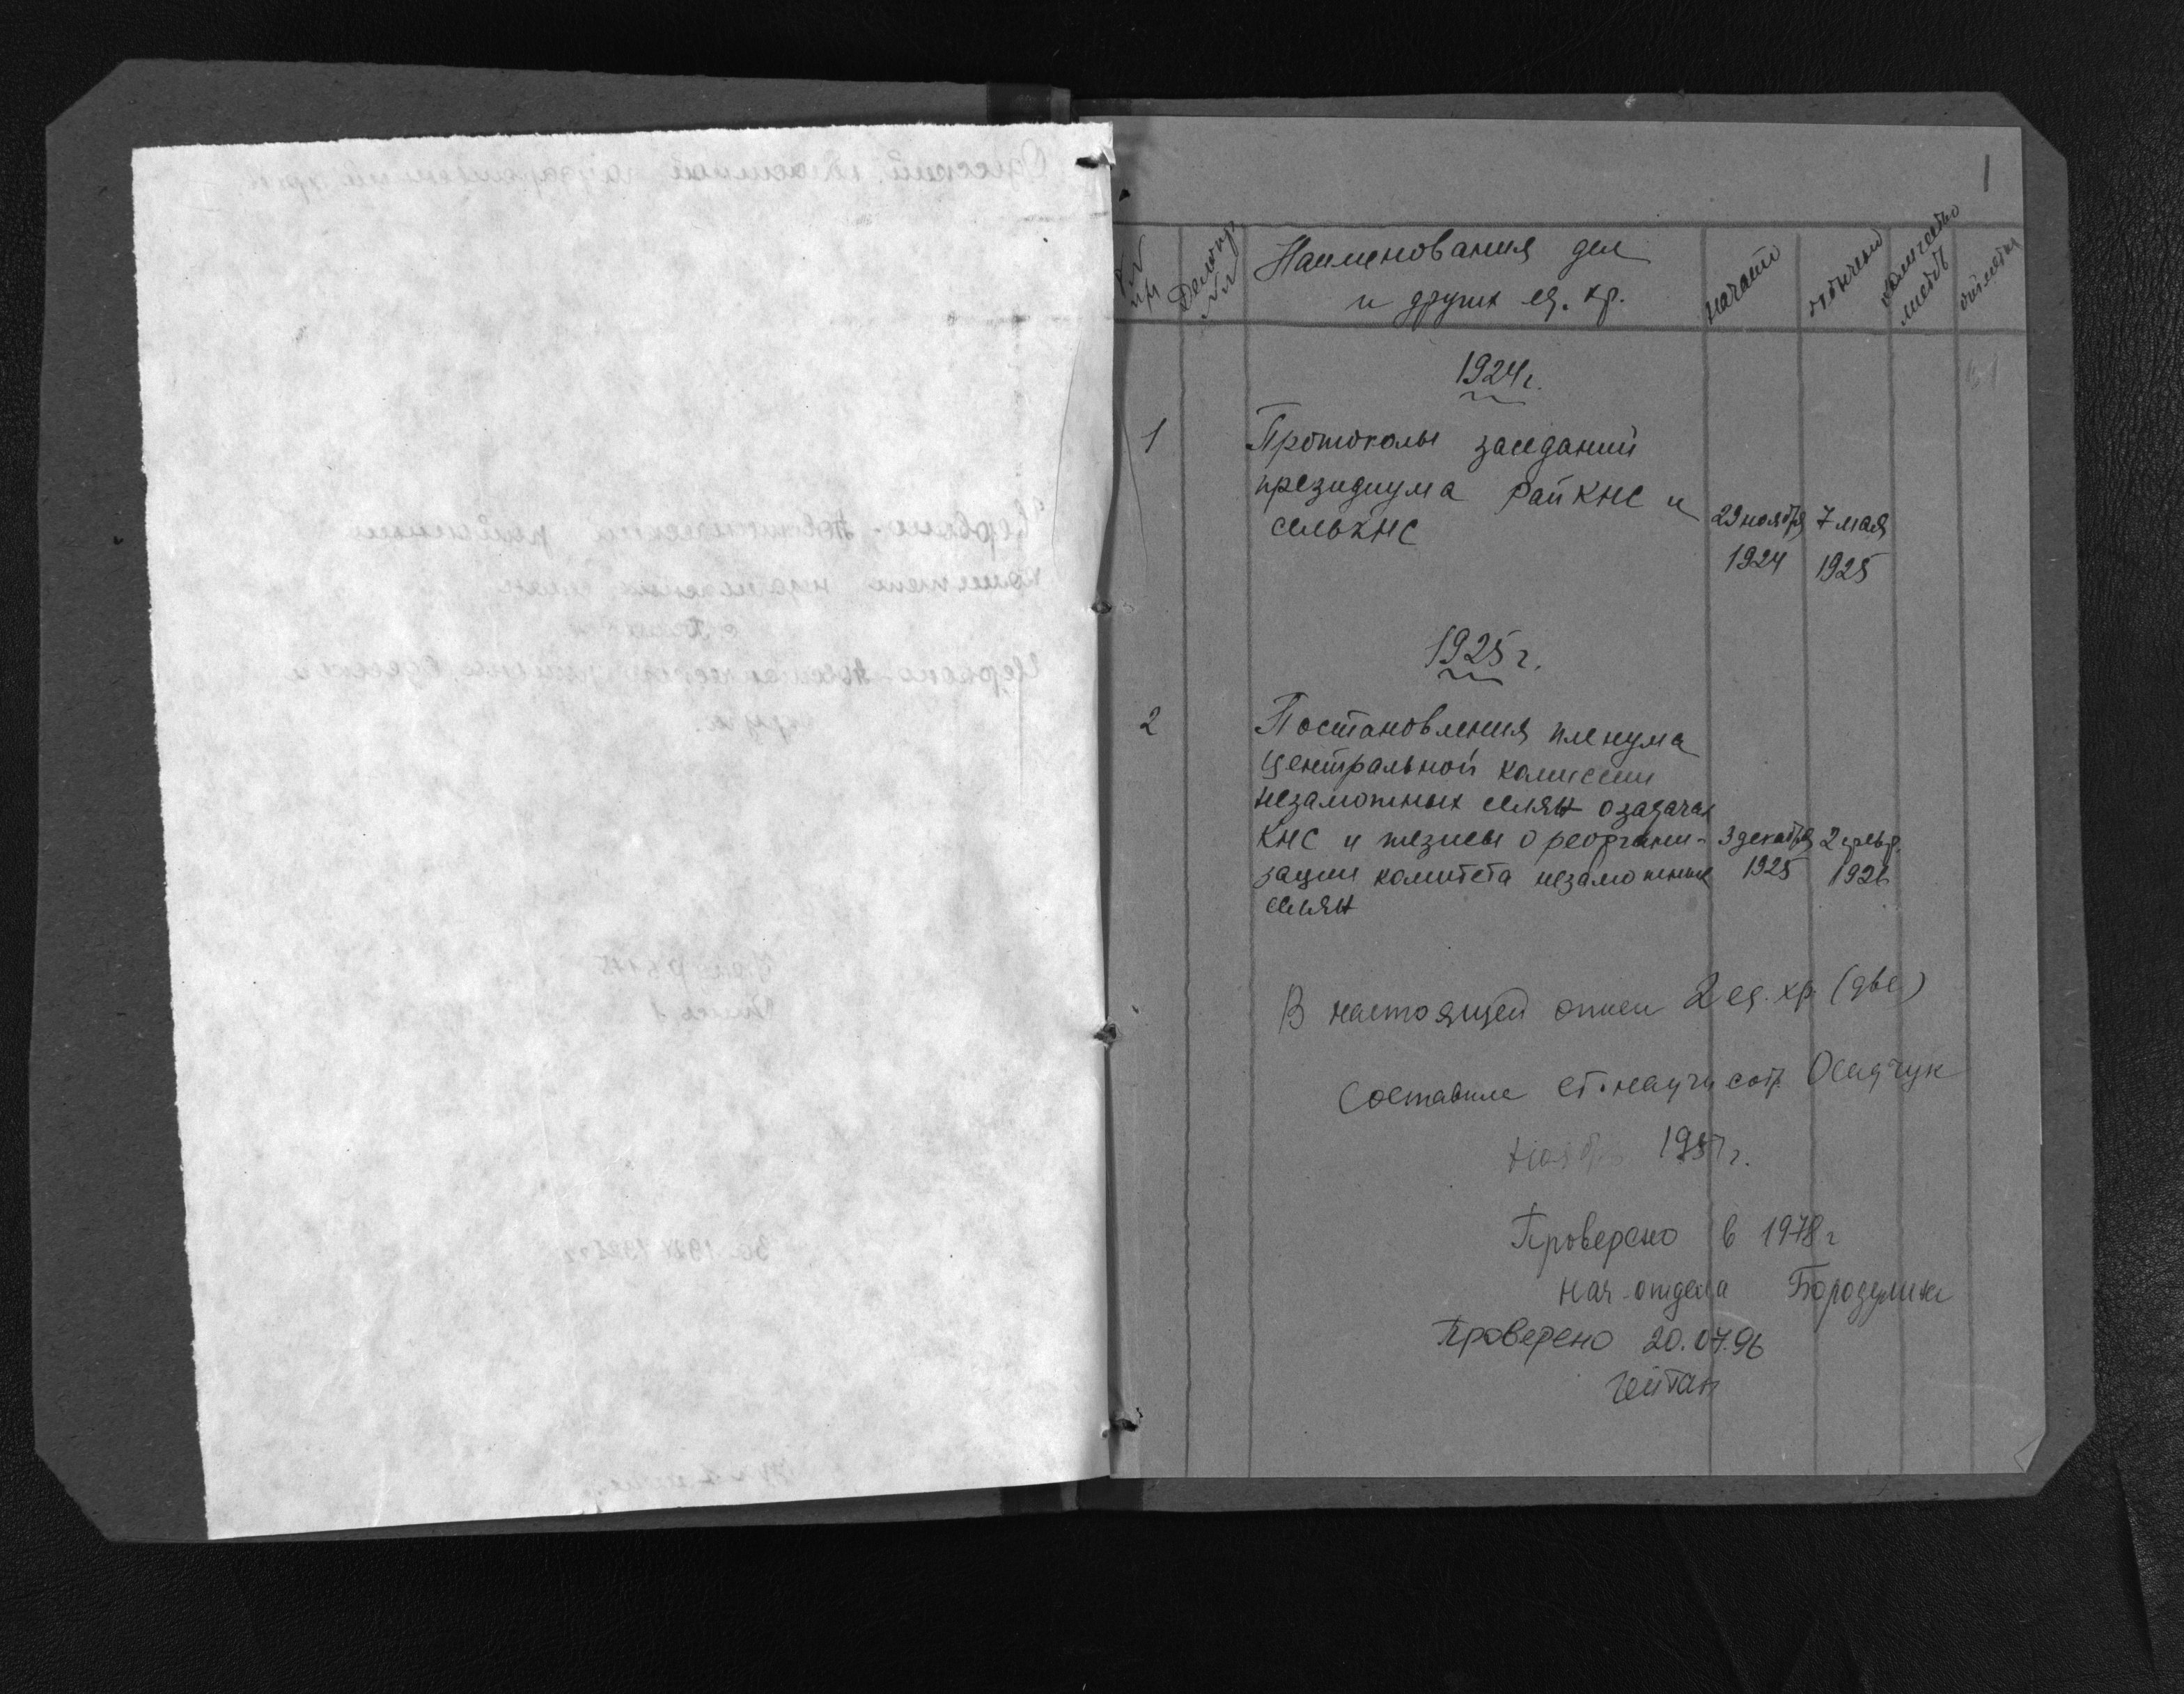 1
NN
пп
Делопр.
NN
Наименования дел
и других ед. хр.
начато
окончено
количество
листов
1924 г.
1
Протоколы заседаний
президиума РайКНС и
сельКНС
29 ноября 1924
7 мая 1925
1925 г.
2
Постановления пленума
Центральной комиссии
незаможных селян о задачах
КНС и тезисы о реоргани-
зации комитета незаможных
селян
3 декабря 1925
2 февр. 1926
В настоящей описи 2 ед. хр (две)
Составила ст. научн сотр. Осадчук
Ноябрь 1957 г.
Проверено в 1978 г
нач. отдела Бородулина
Проверено 20.07.96